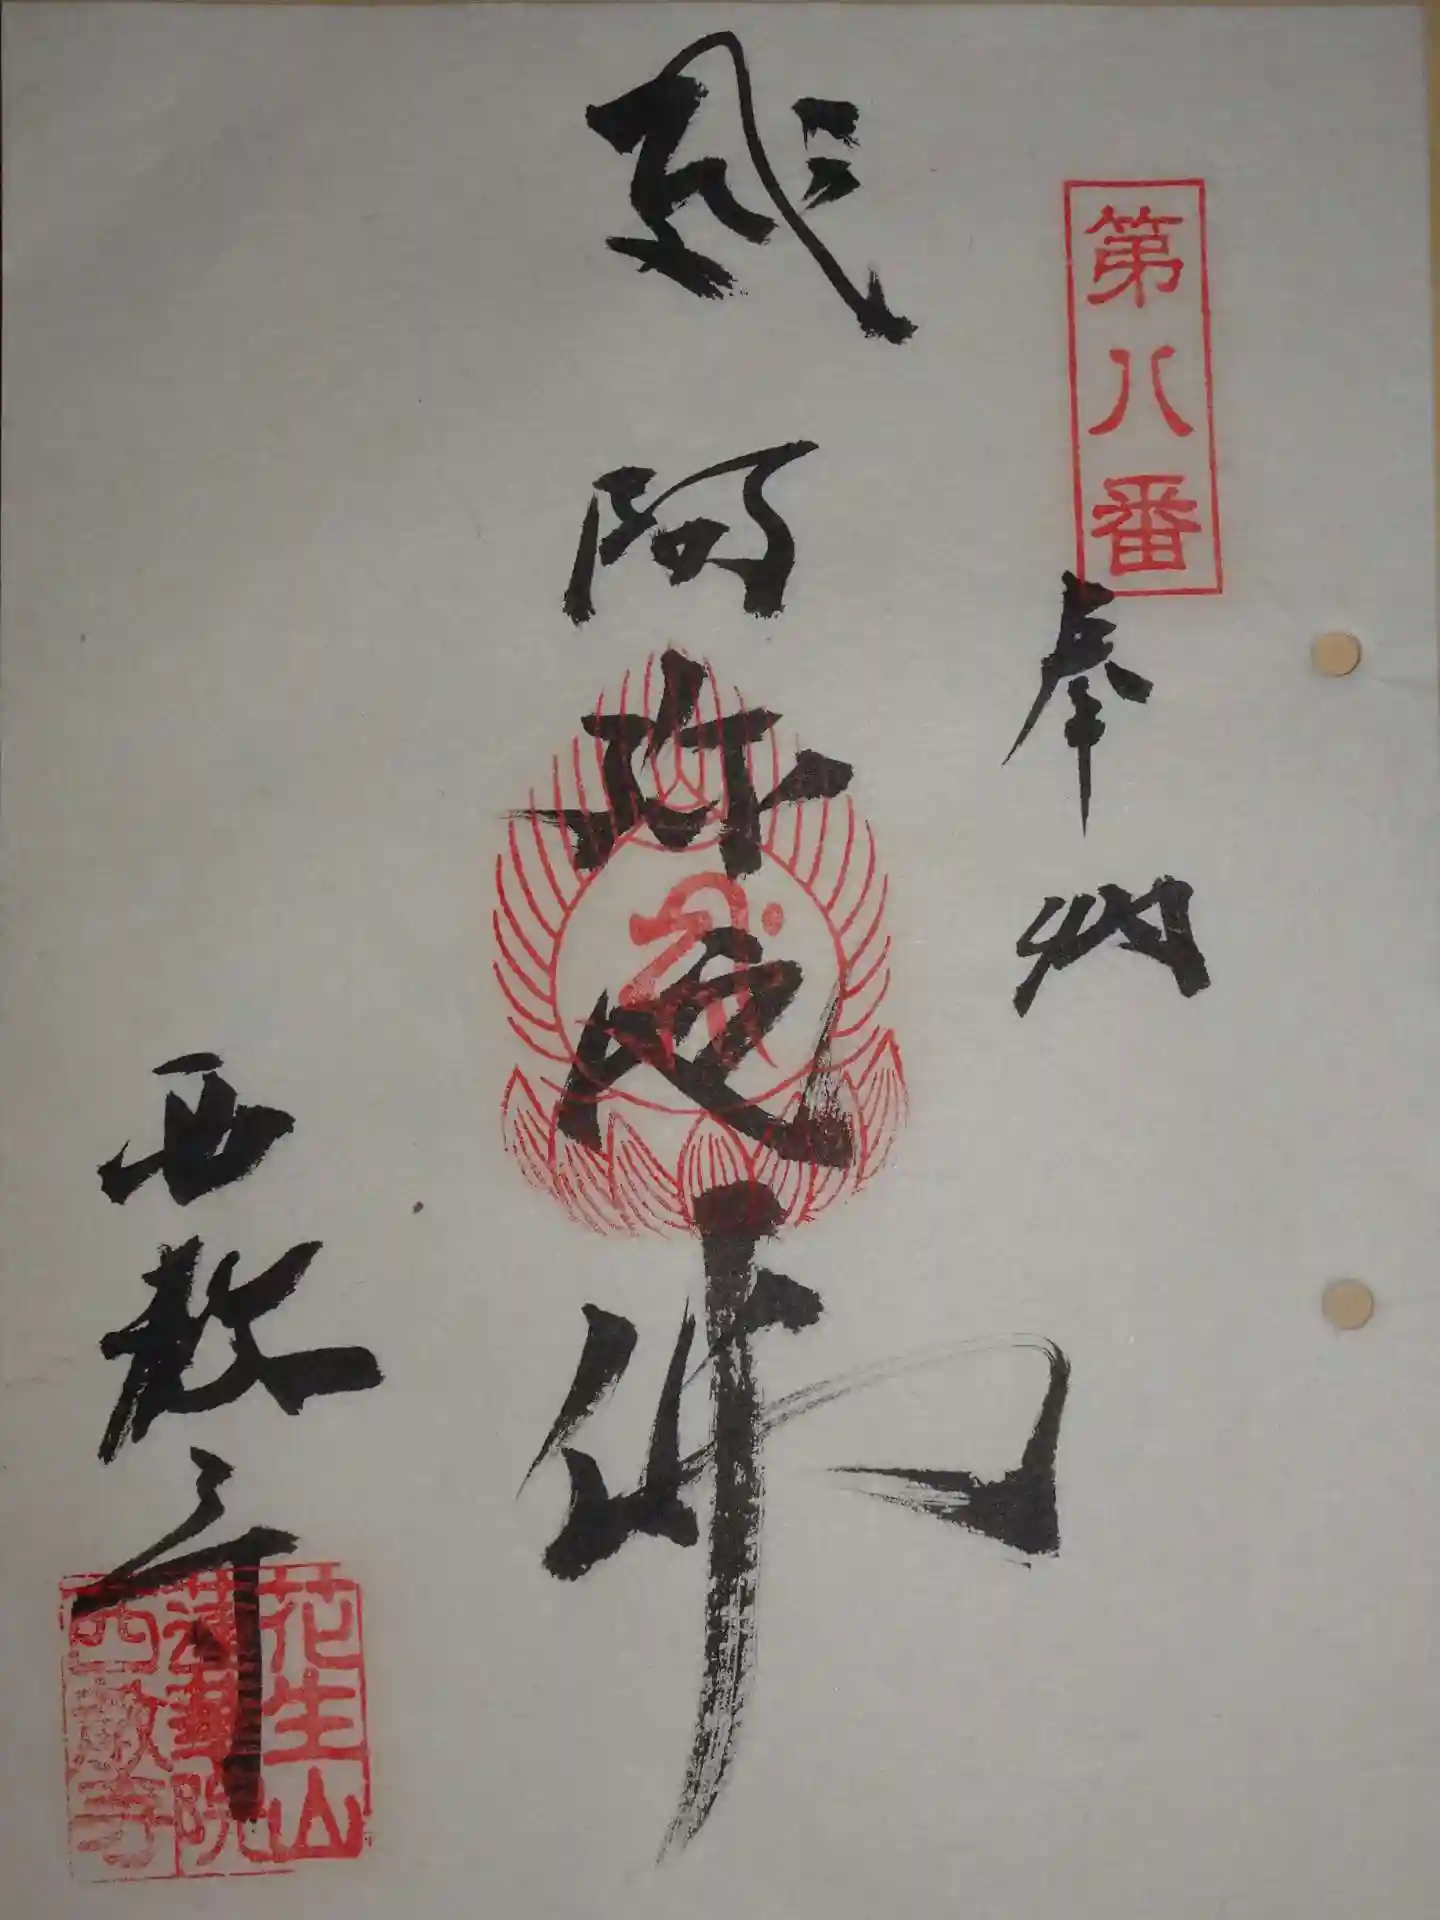 第八番
奉納
ह्रीः
阿弥陀佛
ह्रीः
西教寺
花生山
蓮華院
西教寺